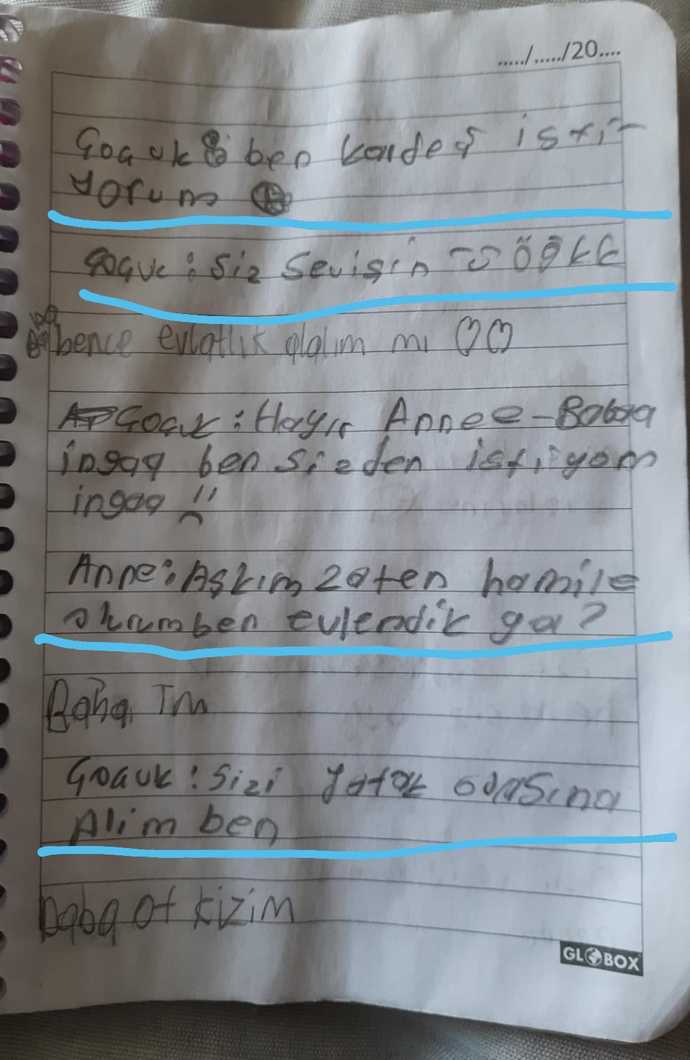 ...../...../20....
Goauk: ben kardeş isti-
yorum
Goauk: Siz Sevişin öğkk
bence evlatlık alalım mı ♡♡
Goauk: Hayır Annee-Babaa
ingaa ben sizden istiyom
ingaa !!
Anne: Aşkım zaten hamile
ben evlendik ya?
Baba Im
Goauk: Sizi yatak odasına
Alim ben
baba ot kizim
GLOBOX